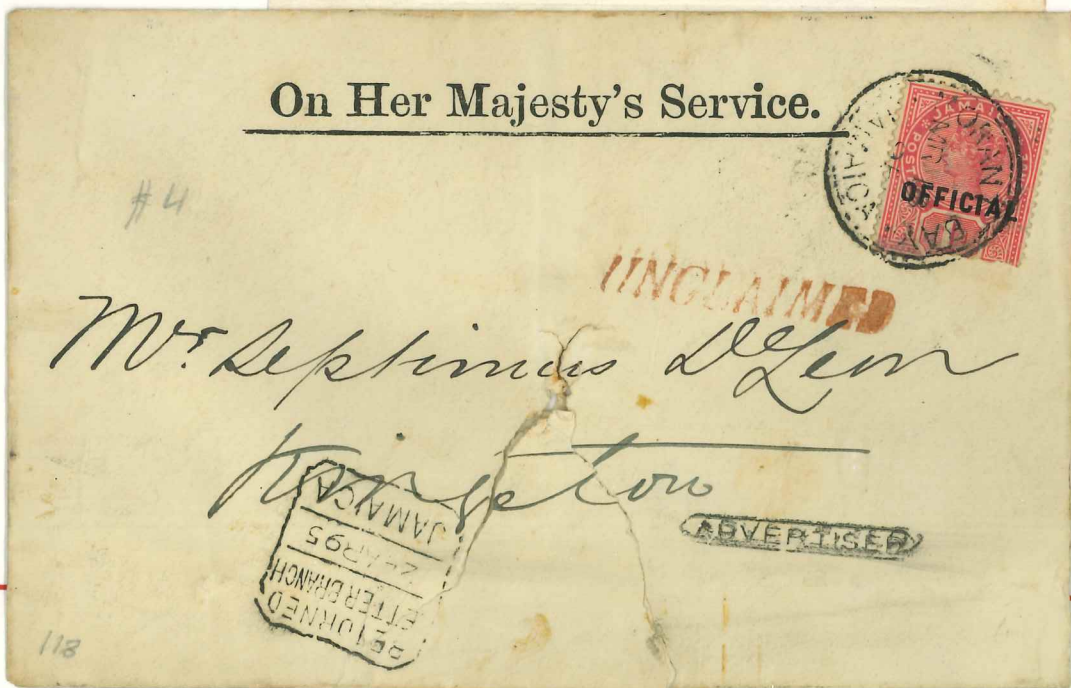 On Her Majesty's Service.
JAMAICA
OFFICIAL
MORANT BAY
JAMAICA
#4
UNCLAIMED
Mr Septimus DeLeon
Kingston
ADVERTISED
RETURNED
LETTER BRANCH
2-AP.95
JAMAICA
118